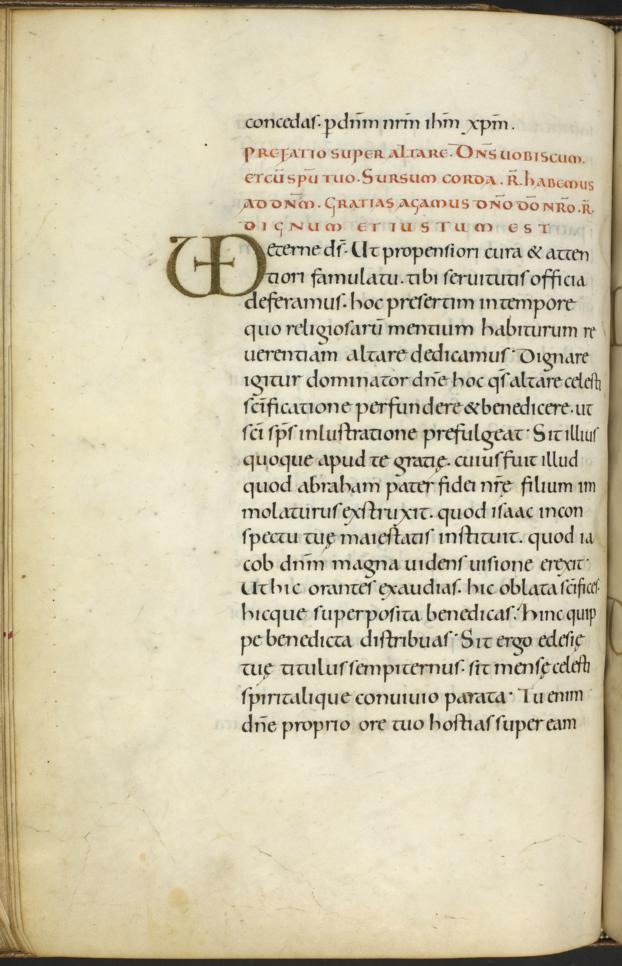 concedas. p dñm nrm ihm xpm.
PREFATIO SUPER ALTARE. DÑS UOBISCUM.
ET CŪ SPŪ TUO. SURSUM CORDA. R̄. HABEMUS
AD DÑM. GRATIAS AGAMUS DÑO DŌ NR̄O. R̄.
DIGNUM ET IUSTUM EST
UD eterne ds̄. Ut propensiori cura & atten
tiori famulatu. tibi seruitutis officia
deferamus. hoc presertim in tempore
quo religiosarū mentium habiturum re
uerentiam altare dedicamus. Dignare
igitur dominator dñe hoc qs̄ altare celesti
sc̄ificatione perfundere & benedicere. ut
sc̄i sp̄s inlustratione prefulgeat. Sit illius
quoque apud te gratię. cuius fuit illud
quod abraham pater fidei nrē filium im
molaturus exstruxit. quod isaac in con
spectu tuę maiestatis instituit. quod ia
cob dñm magna uidens uisione erexit.
Ut hic orantes exaudias. hic oblata sc̄ifices.
hicque superposita benedicas. hinc quip
pe benedicta distribuas. Sit ergo edesię
tuę titulus sempiternus. sit mensę celesti
spiritalique conuiuio parata. Tu enim
dñe proprio ore tuo hostias super eam